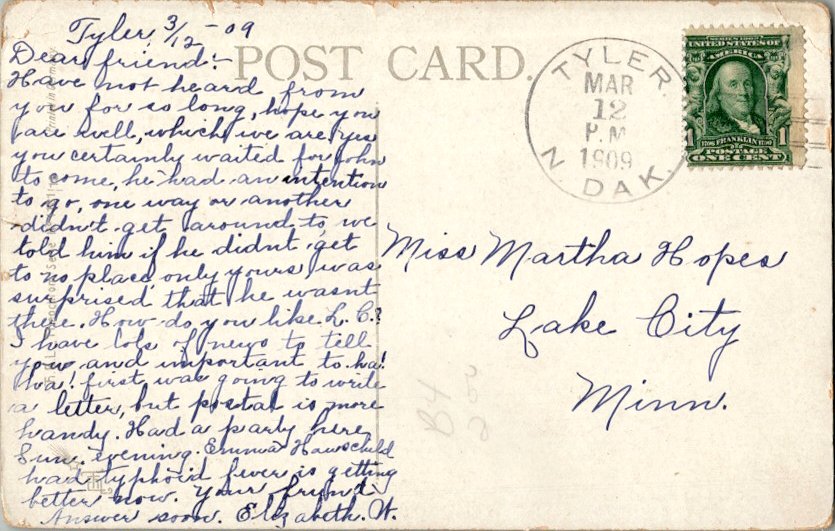 Tyler, 3/12-09
Dear friend:-
Have not heard from
you for so long, hope you
are well, which we are. Yes
you certainly waited for John
to come, he had an intention
to go, one way or another
didn't get around to, we
told him if he didnt get
to no place only yours, was
surprised that he wasnt
there. How do you like L. C.?
I have lots of news to tell
you and important to. ha!
ha! first was going to write
a letter, but postal is more
handy. Had a party here
Sun. evening. Emma Hawschild
had typhoid fever is getting
better now. Your friend
Answer soon. Elizabeth. W.
POST CARD.
TYLER.
MAR
12
P.M
1909
N DAK.
SERIES 1902
UNITED STATES OF
AMERICA
1 1
1706 FRANKLIN 1790
POSTAGE
ONE CENT
Miss Martha Hopes
Lake City
Minn.
B4